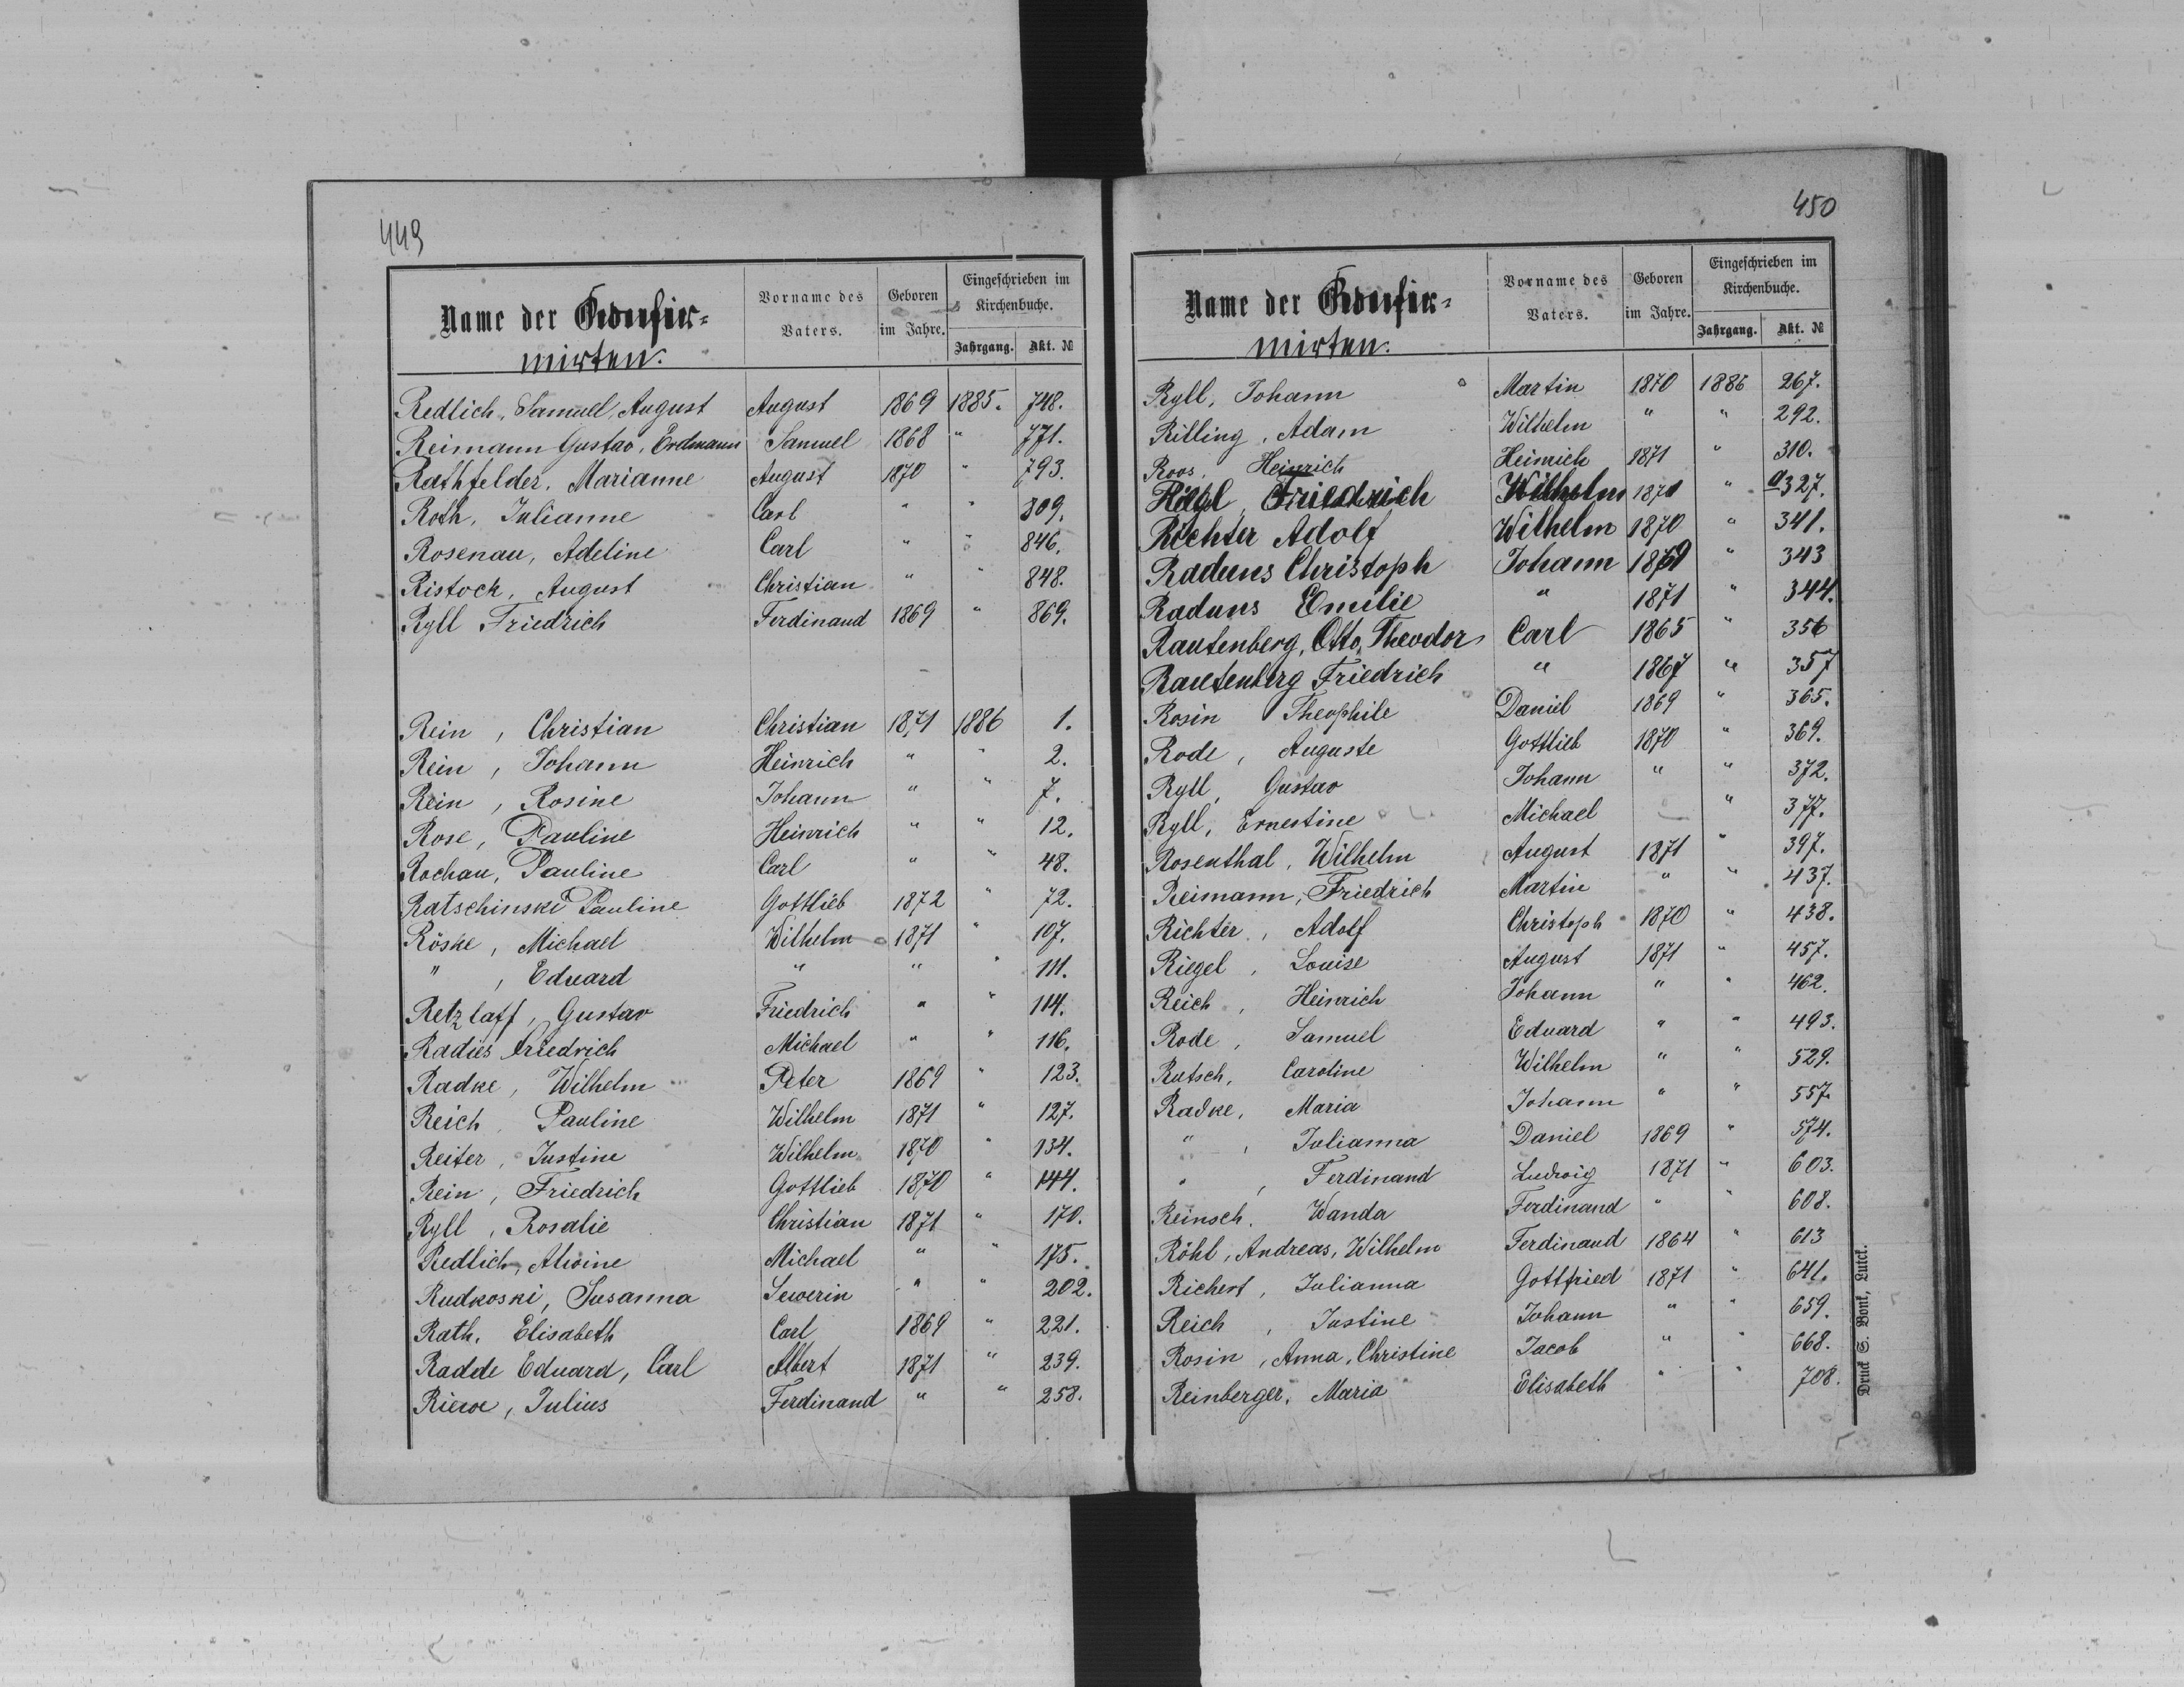 449
Name der Confir=
mirten.
Vorname des Vaters.
Geboren im Jahre.
Eingeschrieben im Kirchenbuche.
Jahrgang. Akt. №
Redlich, Samuel, August August 1869 1885. 748.
Reimann Gustav, Erdmann Samuel 1868 " 771.
Rathfelder, Marianne August 1870 " 793.
Roth, Julianne Carl " " 809.
Rosenau, Adeline Carl " " 846.
Ristock, August Christian " " 848.
Ryll Friedrich Ferdinand 1869 " 869.
Rein, Christian Christian 1871 1886 1.
Rein, Johann Heinrich " " 2.
Rein, Rosine Johann " " 7.
Rose, Pauline Heinrich " " 12.
Rochau, Pauline Carl " " 48.
Ratschinski Pauline Gottlieb 1872 " 72.
Röske, Michael Wilhelm 1871 " 107.
" , Eduard " " " 111.
Retzlaff, Gustav Friedrich " " 114.
Radies Friedrich Michael " " 116.
Radke, Wilhelm Peter 1869 " 123.
Reich, Pauline Wilhelm 1871 " 127.
Reiter, Justine Wilhelm 1870 " 134.
Rein, Friedrich Gottlieb 1870 " 144.
Ryll, Rosalie Christian 1871 " 170.
Redlich, Alwine Michael " " 175.
Rudkoski, Susanna Sewerin " " 202.
Rath, Elisabeth Carl 1869 " 221.
Radde Eduard, Carl Albert 1871 " 239.
Riewe, Julius Ferdinand " " 258.
450
Name der Confir=
mirten.
Vorname des Vaters.
Geboren im Jahre.
Eingeschrieben im Kirchenbuche.
Jahrgang. Akt. №
Ryll, Johann Martin 1870 1886 267.
Rilling, Adam Wilhelm " " 292.
Roos, Heinrich Heinrich 1871 " 310.
Friedrich Wilhelm 1871 " a327.
Richter Adolf Wilhelm 1870 " 341.
Raduns Christoph Johann 1869 " 343
Raduns Emilie " 1871 " 344.
Rautenberg, Otto, Theodor Carl 1865 " 356
Rautenberg Friedrich " 1867 " 357
Rosin Theophile Daniel 1869 " 365.
Rode, Auguste Gottlieb 1870 " 369.
Ryll, Gustav Johann " " 372.
Ryll, Ernestine Michael " 377.
Rosenthal, Wilhelm August 1871 " 397.
Reimann, Friedrich Martin " " 437.
Richter, Adolf Christoph 1870 " 438.
Riegel, Louise August 1871 " 457.
Reich, Heinrich Johann " " 462.
Rode, Samuel Eduard " " 493.
Rutsch, Caroline Wilhelm " " 529.
Radke, Maria Johann " " 557.
" , Julianna Daniel 1869 " 574.
" , Ferdinand Ludwig 1871 " 603.
Reinsch, Wanda Ferdinand " " 608.
Röhl, Andreas, Wilhelm Ferdinand 1864 " 613
Richert, Julianna Gottfried 1871 " 641.
Reich, Justine Johann " " 659.
Rosin, Anna, Christine Jacob " " 668.
Reinberger, Maria Elisabeth " " 708.
Druck S. Bonk, Luck.